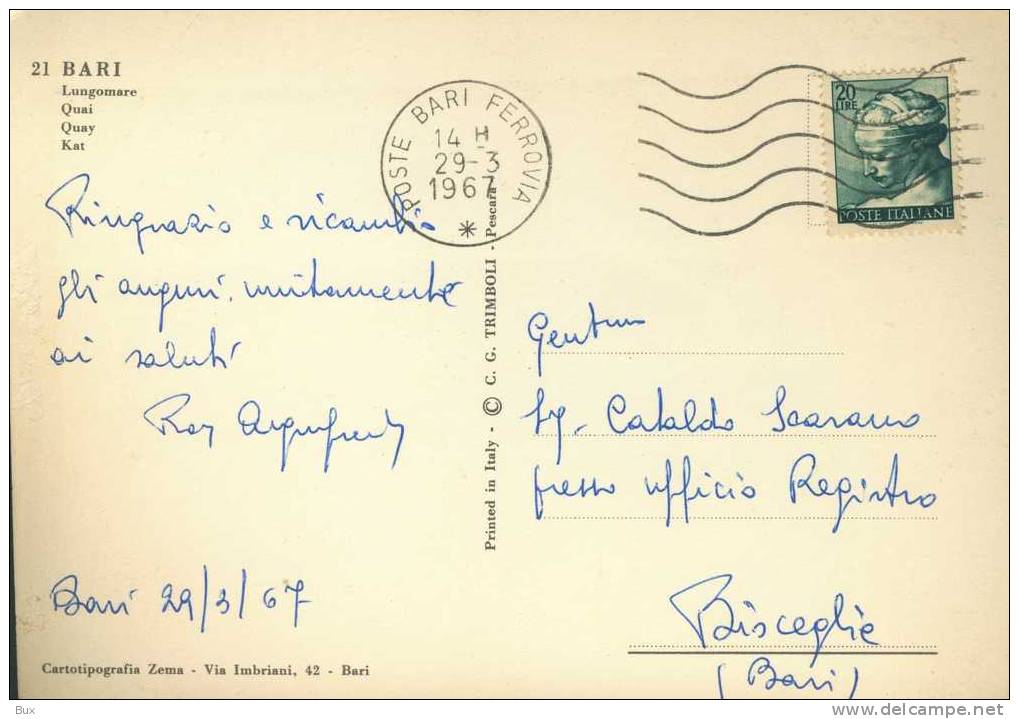 21 BARI
Lungomare
Quai
Quay
Kat
POSTE BARI FERROVIA
14 H
29-3
1967
20
LIRE
POSTE ITALIANE
Ringrazio e ricambio
gli auguri. unitamente
ai saluti
Bari 29/3/67
Cartotipografia Zema - Via Imbriani, 42 - Bari
Printed in Italy - © C. G. TRIMBOLI - Pescara
Sig. Cataldo Scarano
presso ufficio Registro
Bisceglie
(Bari)
Bux
www.delcampe.net